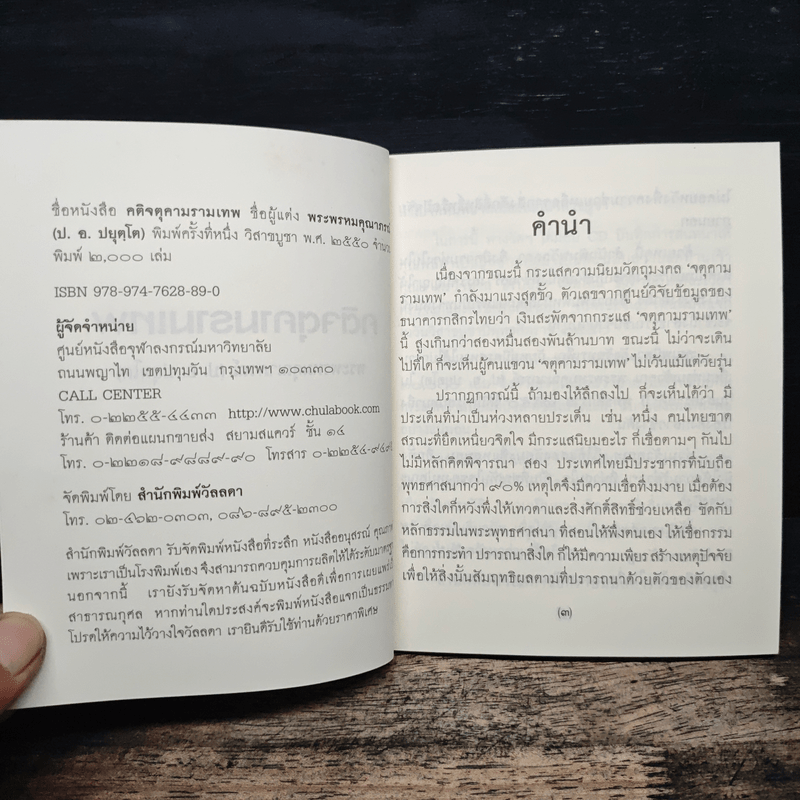 ชื่อหนังสือ คติจตุคามรามเทพ ชื่อผู้แต่ง พระพรหมคุณาภรณ์
(ป. อ. ปยุตฺโต) พิมพ์ครั้งที่หนึ่ง วิสาขบูชา พ.ศ. ๒๕๕๐ จำนวน
พิมพ์ ๒,๐๐๐ เล่ม
ISBN 978-974-7628-89-0
ผู้จัดจำหน่าย
ศูนย์หนังสือจุฬาลงกรณ์มหาวิทยาลัย
ถนนพญาไท เขตปทุมวัน กรุงเทพฯ ๑๐๓๓๐
CALL CENTER
โทร. ๐-๒๒๕๕-๔๔๓๓ http://www.chulabook.com
ร้านค้า ติดต่อแผนกขายส่ง สยามสแควร์ ชั้น ๑๔
โทร. ๐-๒๒๑๘-๙๘๘๙-๙๐ โทรสาร ๐-๒๒๕๔-๙๔๙
จัดพิมพ์โดย สำนักพิมพ์วัลลดา
โทร. ๐๒-๔๖๒-๐๓๐๓, ๐๘๖-๘๙๕-๒๓๐๐
สำนักพิมพ์วัลลดา รับจัดพิมพ์หนังสือที่ระลึก หนังสืออนุสรณ์ คุณภาพ
เพราะเราเป็นโรงพิมพ์เอง จึงสามารถควบคุมการผลิตให้ได้ระดับมาตรฐาน
นอกจากนี้ เรายังรับจัดหาต้นฉบับหนังสือดีเพื่อการเผยแพร่เป็น
สาธารณกุศล หากท่านใดประสงค์จะพิมพ์หนังสือแจกเป็นธรรมทาน
โปรดให้ความไว้วางใจวัลลดา เรายินดีรับใช้ท่านด้วยราคาพิเศษ
คำนำ
เนื่องจากขณะนี้ กระแสความนิยมวัตถุมงคล ‘จตุคาม
รามเทพ’ กำลังมาแรงสุดขั้ว ตัวเลขจากศูนย์วิจัยข้อมูลของ
ธนาคารกสิกรไทยว่า เงินสะพัดจากกระแส ‘จตุคามรามเทพ’
นี้ สูงเกินกว่าสองหมื่นสองพันล้านบาท ขณะนี้ ไม่ว่าจะเดิน
ไปที่ใด ก็จะเห็นผู้คนแขวน ‘จตุคามรามเทพ’ ไม่เว้นแม้แต่วัยรุ่น
ปรากฏการณ์นี้ ถ้ามองให้ลึกลงไป ก็จะเห็นได้ว่า มี
ประเด็นที่น่าเป็นห่วงหลายประเด็น เช่น หนึ่ง คนไทยขาด
สรณะที่ยึดเหนี่ยวจิตใจ มีกระแสนิยมอะไร ก็เชื่อตามๆ กันไป
ไม่มีหลักคิดพิจารณา สอง ประเทศไทยมีประชากรที่นับถือ
พุทธศาสนากว่า ๙๐% เหตุใดจึงมีความเชื่อที่งมงาย เมื่อต้อง
การสิ่งใดก็หวังพึ่งให้เทวดาและสิ่งศักดิ์สิทธิ์ช่วยเหลือ ขัดกับ
หลักธรรมในพระพุทธศาสนา ที่สอนให้พึ่งตนเอง ให้เชื่อกรรม
คือการกระทำ ปรารถนาสิ่งใด ก็ให้มีความเพียร สร้างเหตุปัจจัย
เพื่อให้สิ่งนั้นสัมฤทธิผลตามที่ปรารถนาด้วยตัวของตัวเอง
(๓)